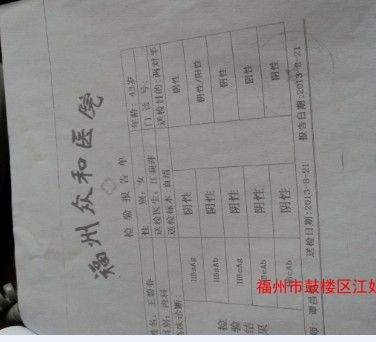 福州众和医院
检验报告单
性别：女 年龄：43岁
科别：内科 送检医生：江莉萍 门诊号：
临床诊断： 送检标本：血清 送检目的：两对半
检验结果
HBsAg 阴性 阴性
HBsAb 阴性 阴性/阳性
HBeAg 阴性 阴性
HBeAb 阴性 阴性
HBcAb 阴性 阴性
送检日期：2013-8-21 报告日期：2013-8-21
福州市鼓楼区江